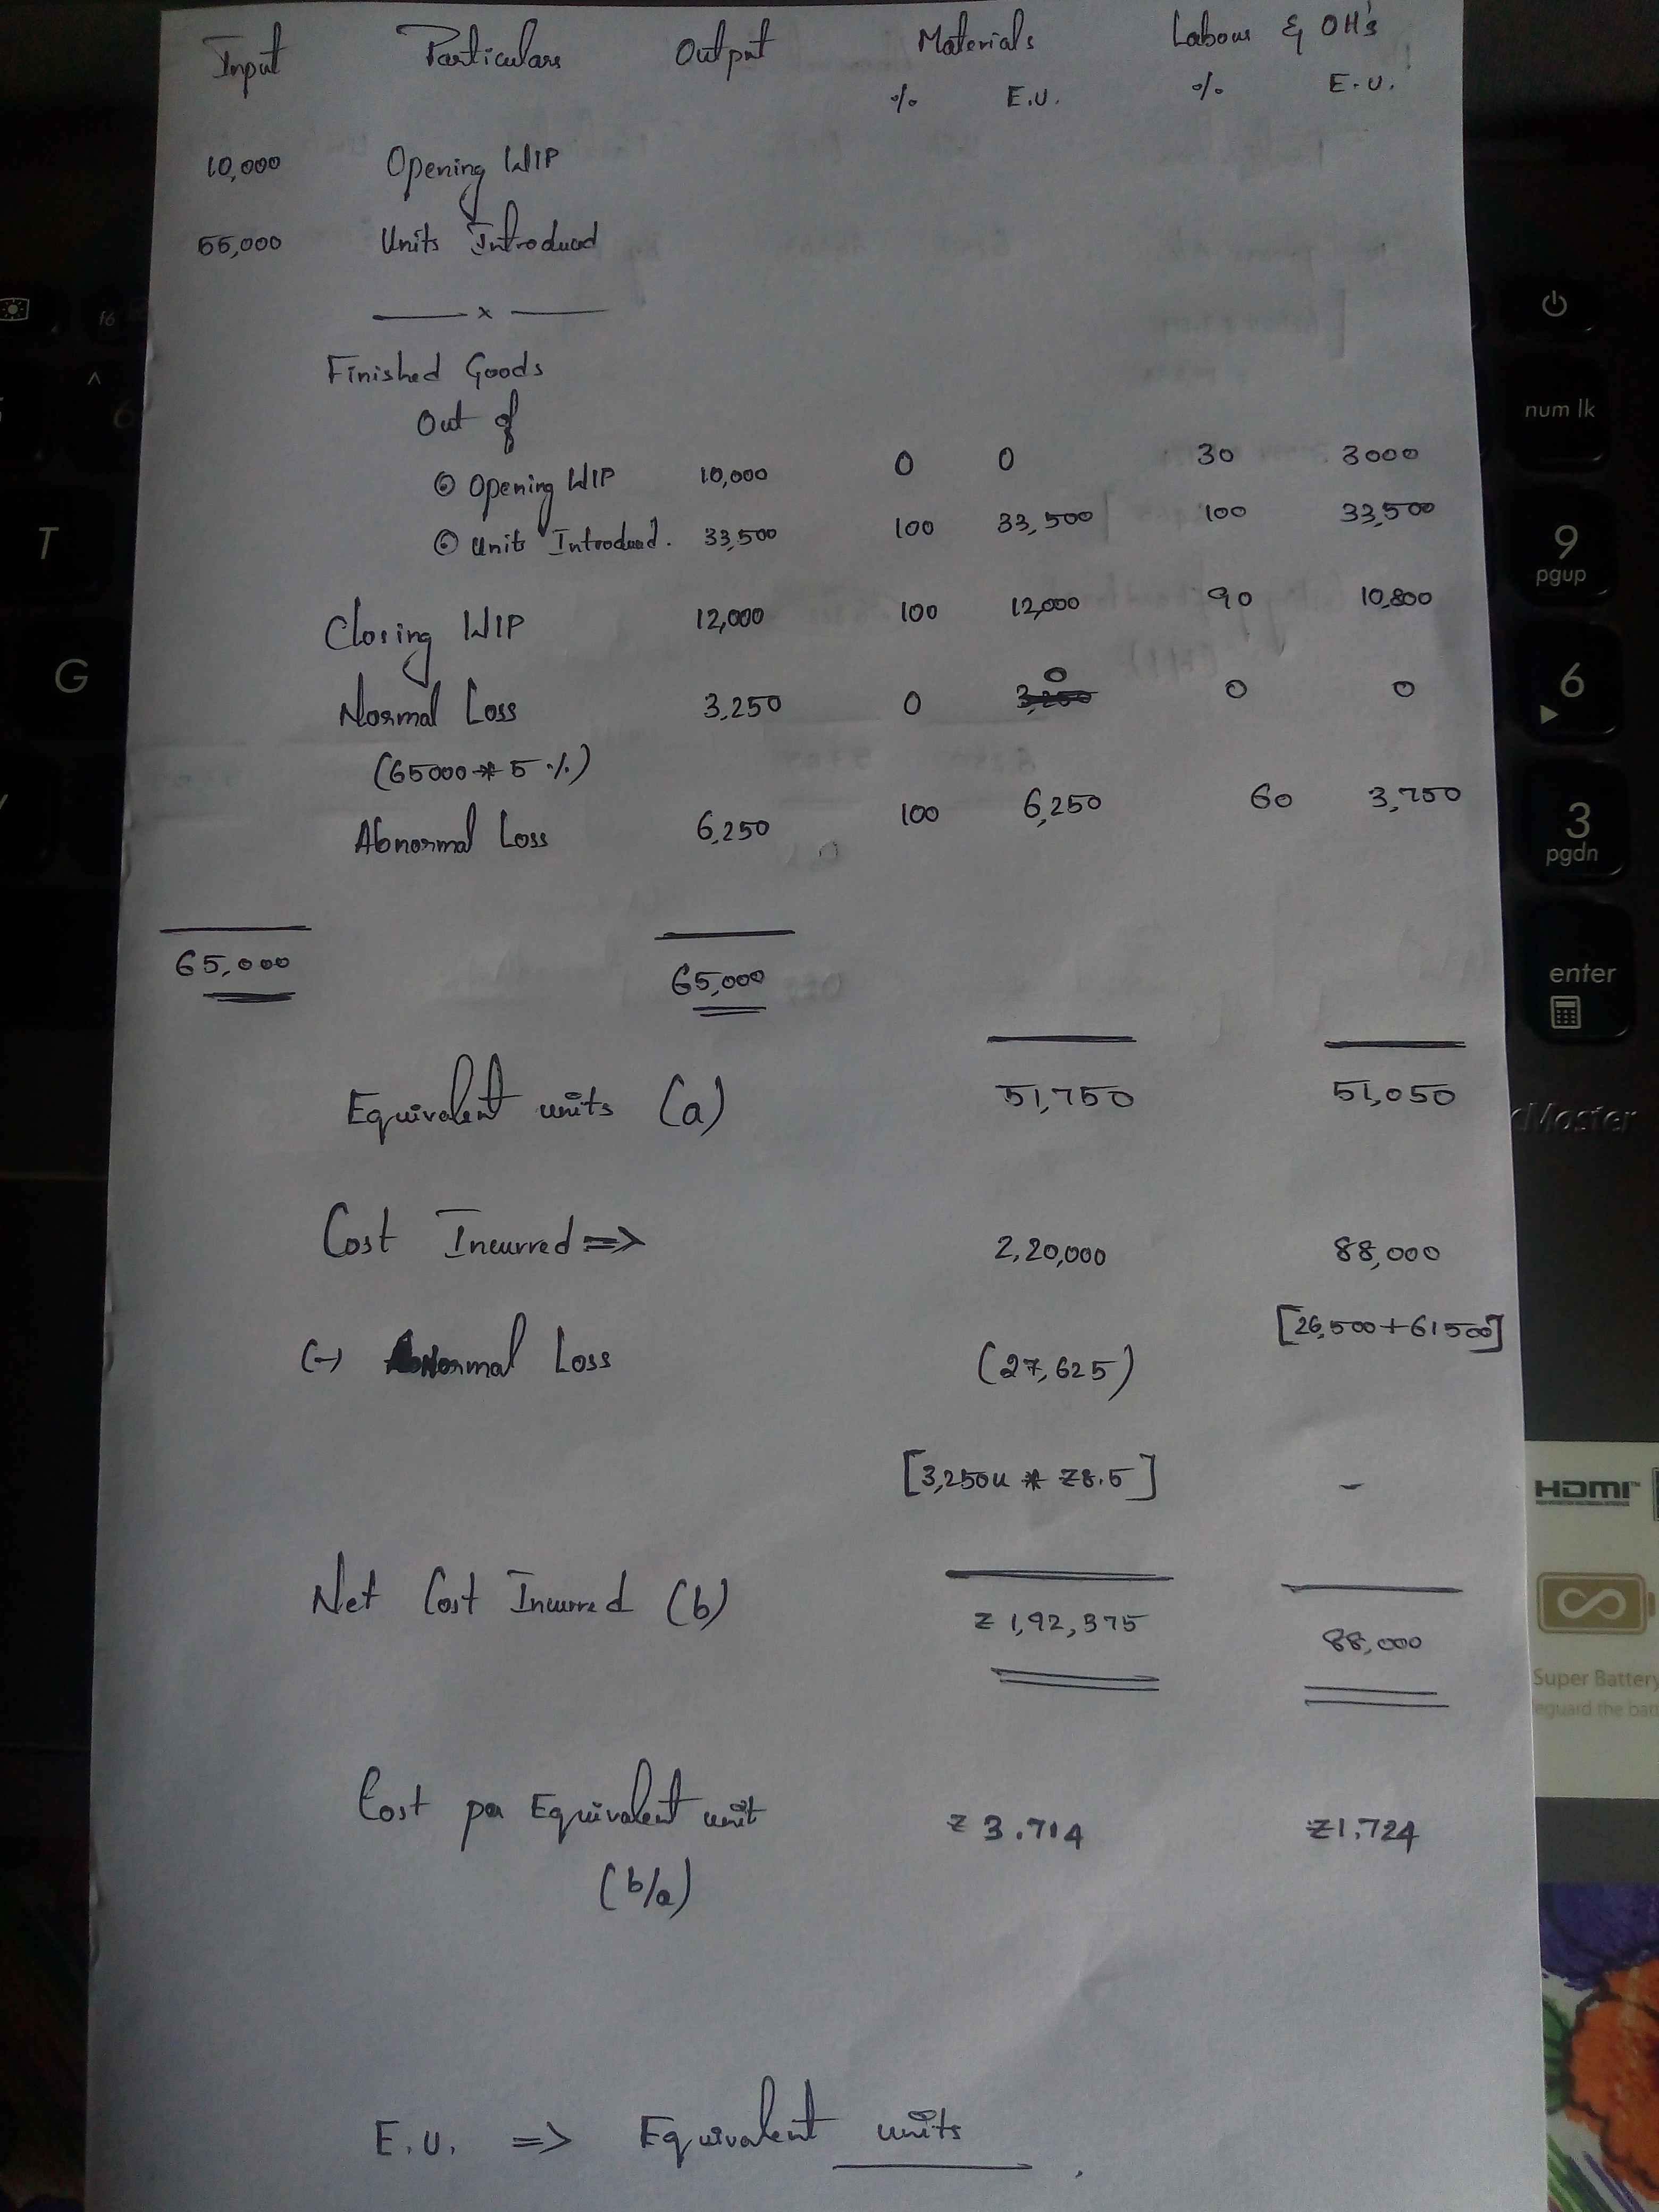 Input Particulars Output Materials Labour & OH's
% E.U. % E.U.
10,000 Opening WIP
55,000 Units Introduced
x
Finished Goods
Out of
Opening WIP 10,000 0 0 30 3000
Units Introduced. 33,500 100 33,500 100 33,500
Closing WIP 12,000 100 12,000 90 10,800
Normal Loss 3,250 0 0 0 0
(65000 * 5 %)
Abnormal Loss 6,250 100 6,250 60 3,750
65,000 65,000
Equivalent units (a) 51,750 51,050
Cost Incurred => 2,20,000 88,000
[26,500+61500]
(-) Normal Loss (27,625)
[3,250u * ₹8.5] -
Net Cost Incurred (b) ₹ 1,92,375 88,000
Cost per Equivalent unit ₹ 3.714 ₹1.724
(b/a)
E.U. => Equivalent units.
f6
6
T
G
num lk
9
pgup
6
3
pgdn
enter
Master
HDMI
Super Battery